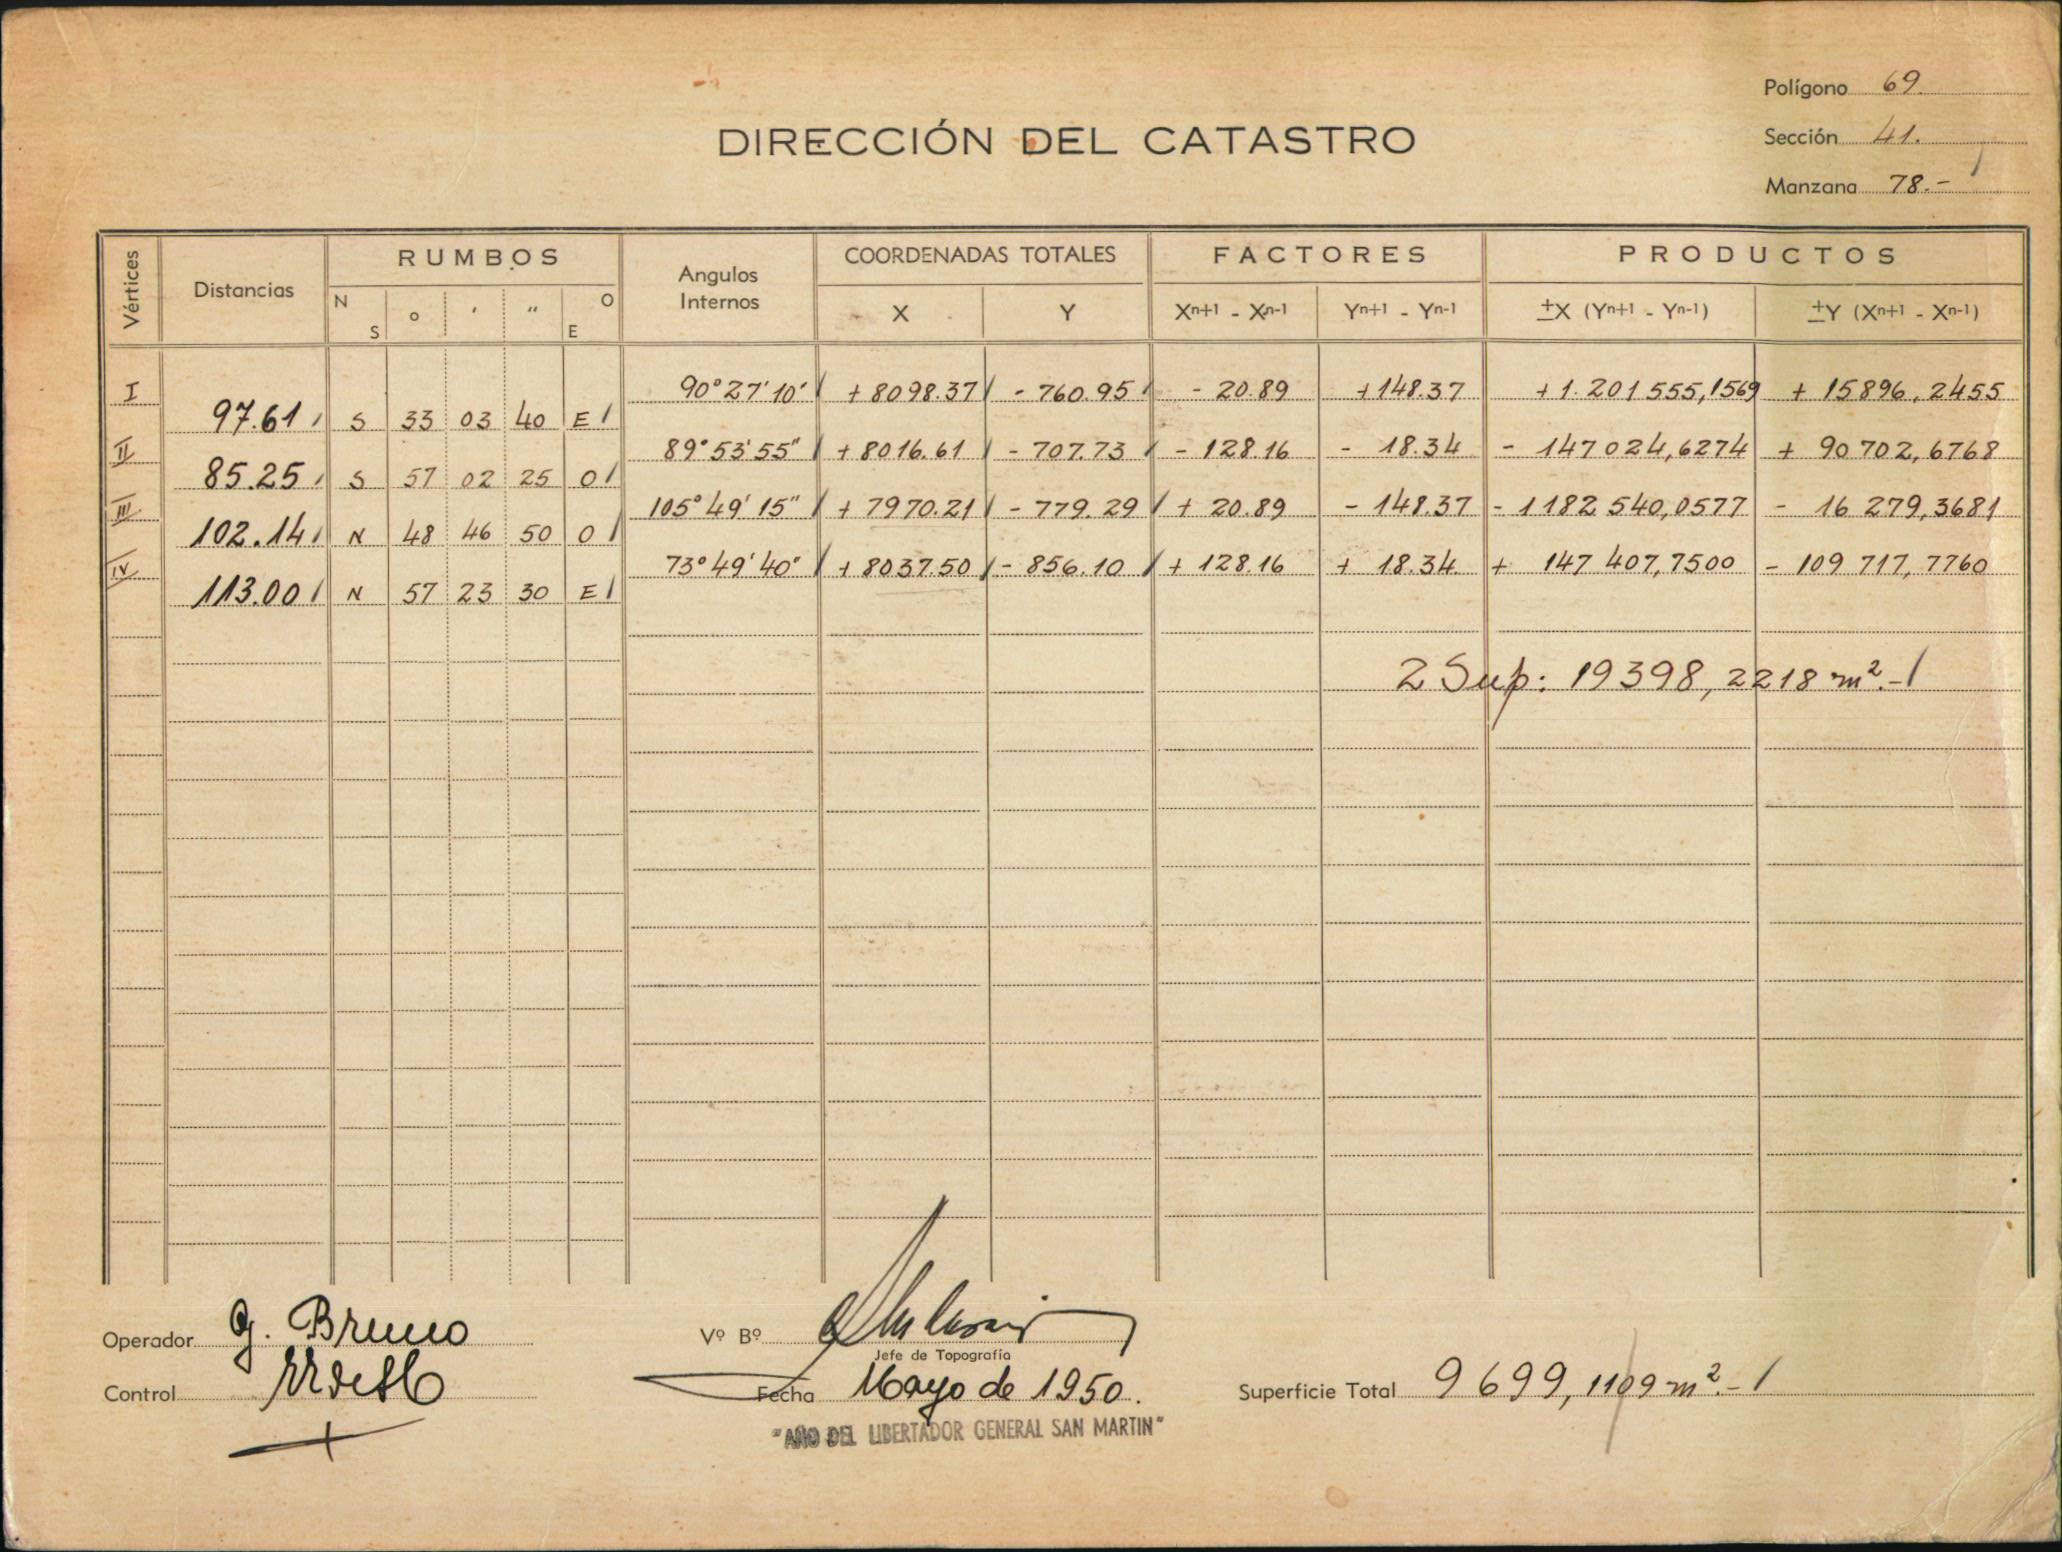 Polígono 69.
DIRECCIÓN DEL CATASTRO
Sección 41.
Manzana 78.-
Vértices Distancias RUMBOS Angulos Internos COORDENADAS TOTALES FACTORES PRODUCTOS
N S o ' " O E X Y Xn+1 - Xn-1 Yn+1 - Yn-1 ±X (Yn+1 - Yn-1) ±Y (Xn+1 - Xn-1)
I 90°27'10' + 8098.37 - 760.95 - 20.89 +148.37 + 1.201555,1569 + 15896,2455
97.61 S 33 03 40 E
II 89°53'55" + 8016.61 - 707.73 - 128.16 - 18.34 - 147024,6274 + 90702,6768
85.25 S 57 02 25 O
III 105°49'15" + 7970.21 - 779.29 + 20.89 - 148.37 - 1182540,0577 - 16279,3681
102.14 N 48 46 50 O
IV 73°49'40" + 8037.50 - 856.10 + 128.16 + 18.34 + 147407,7500 - 109717,7760
113.00 N 57 23 30 E
2 Sup: 19398,2218 m².-
Operador G. Bruno
Vº Bº
Jefe de Topografía
Control
Fecha Mayo de 1950.
Superficie Total 9699,1109 m².-
"AÑO DEL LIBERTADOR GENERAL SAN MARTIN"